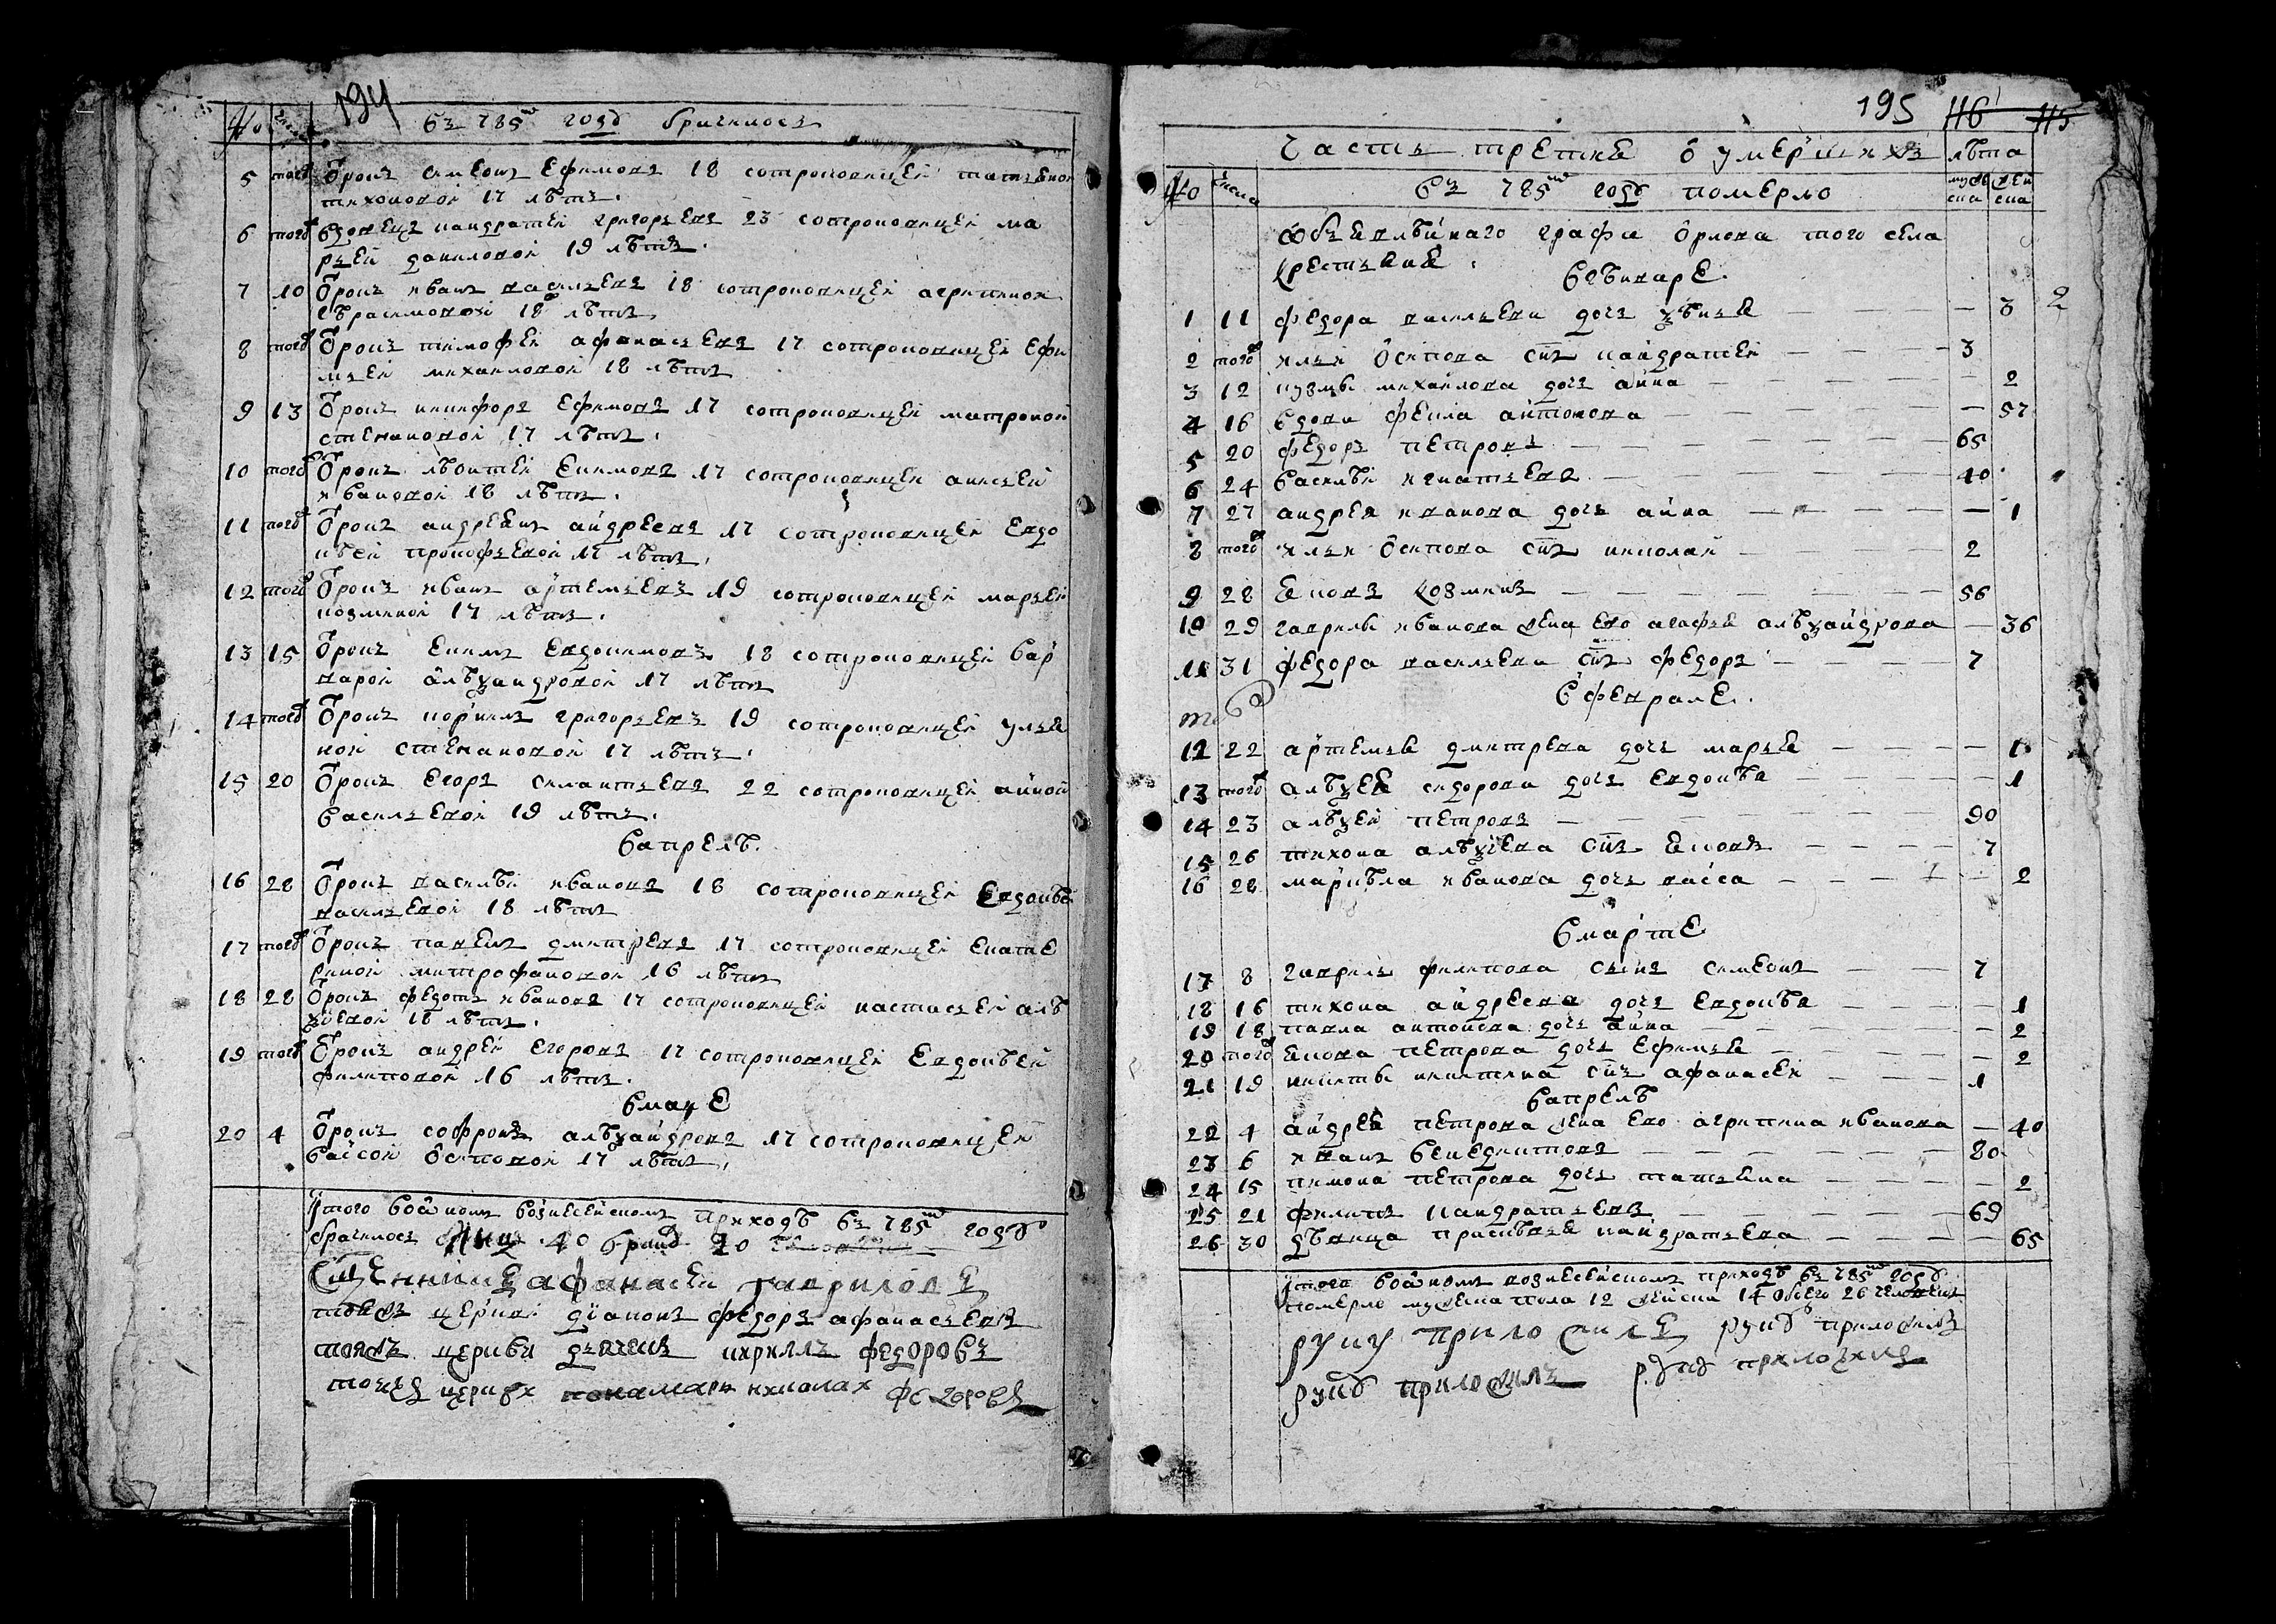 194
№ число въ 785м годѣ бračилось
5 того отрокъ симеонъ ефимовъ 18 сотроковицеи татьяною
тихоновои 17 лѣтъ.
6 того вдовецъ кандратеи григорьевъ 23 сотроковицеи ма
рьеи даниловои 19 лѣтъ.
7 10 отрокъ иванъ васильевъ 18 сотроковицеи агрипинои
гѣрасимовои 18 лѣтъ
8 того отрокъ тимофеи афанасьевъ 17 сотроковицеи ефи
мьеи михаиловои 18 лѣтъ
9 13 отрокъ никифоръ ефимовъ 17 сотроковицеи матронои
степановои 17 лѣтъ.
10 того отрокъ еկимовъ 17 сотроковицеи аксьеи
ивановои 18 лѣтъ.
11 того отрокъ андреянъ андреевъ 17 сотроковицеи евдо
кѣеи прокофьевои 17 лѣтъ.
12 того отрокъ иванъ артемьевъ 19 сотроковицеи марьеи
козминои 17 лѣтъ.
13 15 отрокъ екимъ евдокимовъ 18 сотроковицеи вар
варои алѣѯандровои 17 лѣтъ
14 того отрокъ корнилъ григорьевъ 19 сотроковицеи улья
нои степановои 17 лѣтъ.
15 20 отрокъ егоръ силантьевъ 22 сотроковицеи аннои
васильевои 19 лѣтъ.
вапрелѣ.
16 28 отрокъ василѣи ивановъ 18 сотроковицеи евдокѣеи
васильевои 18 лѣтъ
17 того отрокъ павелъ дмитревъ 17 сотроковицеи екате
ринои митрофановои 16 лѣтъ
18 28 отрокъ федотъ ивановъ 17 сотроковицеи настасьеи алѣ
ѯѣевои 18 лѣтъ.
19 того отрокъ андреи егоровъ 17 сотроковицеи евдокѣеи
филиповои 16 лѣтъ.
вмаие
20 4 отрокъ софронъ алѣѯандровъ 17 сотроковицеи
вассои осиповои 17 лѣтъ.
итого воономъ вознесенскомъ приходѣ въ 785м годѣ
брачилось лицъ 40 бракѡ 20
сщенникъ афанасеи гавриловъ
тоежъ церкви дїаконъ федоръ афанасьевъ
тояжъ церкви дьячекъ кириллъ федоровъ
тоежъ церкви понамарь николаи федоровъ
195 116 115
часть третия о умершихъ лѣта
№ числа въ 785м годѣ померло муже ска жен ска
объявленнаго графа орлова того села
крестьяне.
вгѣнваре.
1 11 федора васильева дочь — — — — 3 2
2 того ильи осипова снъ кандратеи — — — — 3
3 12 кузмы михаилова дочь анна — — — — 2
4 16 вдова фекла антонова — — — — 57
5 20 федоръ петровъ — — — — 65
6 24 василѣи игнатьевъ — — — — 40
7 27 андрея иванова дочь анна — — — — 1
8 того ильи осипова снъ николаи — — — — 2
9 28 яковъ козминъ — — — — 56
10 29 гаврилы иванова жена ево агафья алѣѯандрова — 36
11 31 федора васильева снъ федоръ — — — — 7
вфеврале.
12 22 артемья дмитрева дочь марья — — — — 1
13 того алѣѯея сидорова дочь евдокѣя — — — — 1
14 23 алѣѯеи петровъ — — — — 90
15 26 тихона алѣѯѣева снъ яковъ — — — — 7
16 28 маркѣла иванова дочь васса — — — — 2
вмарте
17 8 гаврилы филипова сынъ симеонъ — — — 7
18 16 тихона андреева дочь евдокѣя — — — — 1
19 18 павла антонова дочь анна — — — — 2
20 того якова петрова дочь ефимья — — — — 2
21 19 никиты никитина снъ афанасеи — — — 1
вапрелѣ
22 4 андрея петрова жена ево агрипина иванова — 40
23 6 иванъ венедиктовъ — — — — 80
24 15 пимона петрова дочь татьяна — — — — 2
25 21 филипъ кандратьевъ — — — — 69
26 30 дѣвица прасковья кандратьева — — — — 65
итого воономъ вознесенскомъ приходѣ въ 785м годѣ
померло мужеска пола 12 женска 14 обоего 26 человекъ
руку приложилъ руку приложилъ
рукѹ приложилъ рукѹ приложилъ